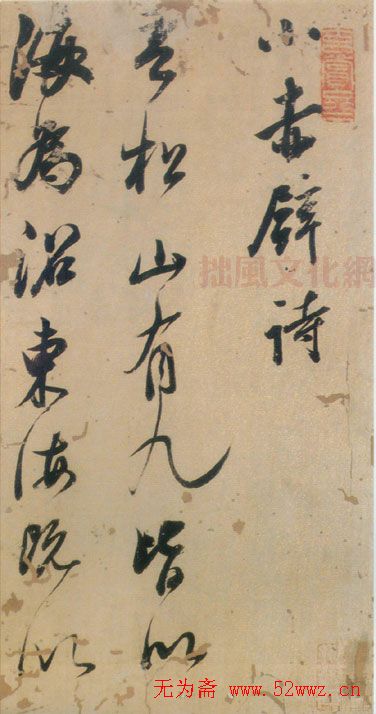 小赤壁詩
吾松山有九皆以
海為沼東海既以
拙風文化網
无为斋 www.52wwz.cn